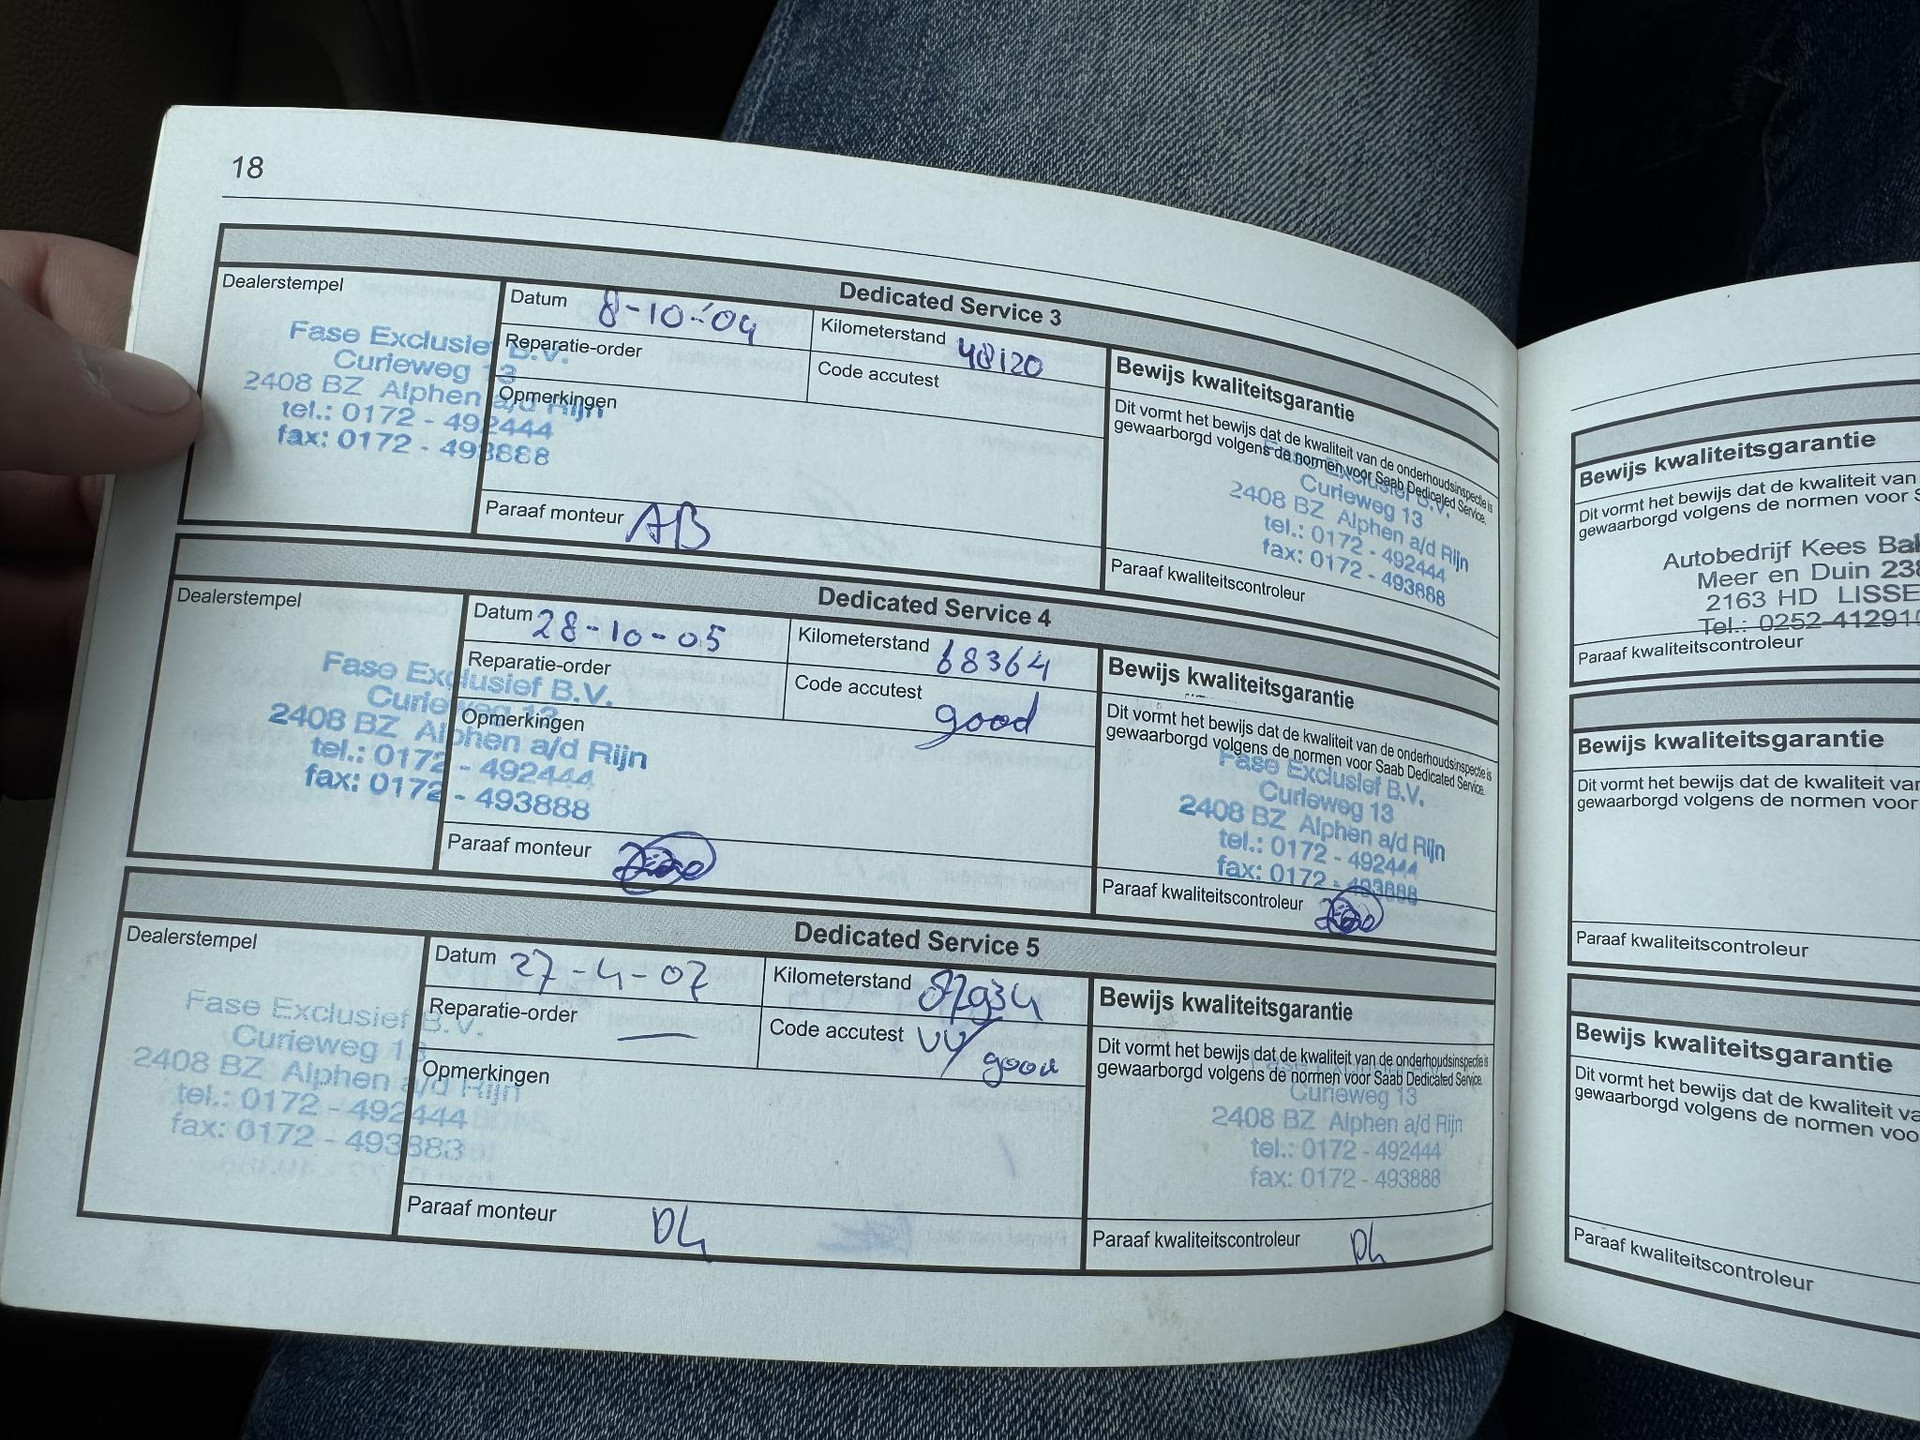 18
Dedicated Service 3
Dealerstempel
Fase Exclusief B.V.
Curieweg 13
2408 BZ Alphen a/d Rijn
tel.: 0172 - 492444
fax: 0172 - 493888
Datum 8-10-'04
Kilometerstand 48120
Reparatie-order
Code accutest
Opmerkingen
Paraaf monteur AB
Bewijs kwaliteitsgarantie
Dit vormt het bewijs dat de kwaliteit van de onderhoudsinspectie is
gewaarborgd volgens de normen voor Saab Dedicated Service.
Fase Exclusief B.V.
Curieweg 13
2408 BZ Alphen a/d Rijn
tel.: 0172 - 492444
fax: 0172 - 493888
Paraaf kwaliteitscontroleur
Dedicated Service 4
Dealerstempel
Fase Exclusief B.V.
Curieweg 13
2408 BZ Alphen a/d Rijn
tel.: 0172 - 492444
fax: 0172 - 493888
Datum 28-10-05
Kilometerstand 68364
Reparatie-order
Code accutest good
Opmerkingen
Paraaf monteur
Bewijs kwaliteitsgarantie
Dit vormt het bewijs dat de kwaliteit van de onderhoudsinspectie is
gewaarborgd volgens de normen voor Saab Dedicated Service.
Fase Exclusief B.V.
Curieweg 13
2408 BZ Alphen a/d Rijn
tel.: 0172 - 492444
fax: 0172 - 493888
Paraaf kwaliteitscontroleur
Dedicated Service 5
Dealerstempel
Fase Exclusief B.V.
Curieweg 13
2408 BZ Alphen a/d Rijn
tel.: 0172 - 492444
fax: 0172 - 493883
Datum 27-4-07
Kilometerstand 87934
Reparatie-order —
Code accutest good
Opmerkingen
Paraaf monteur
Bewijs kwaliteitsgarantie
Dit vormt het bewijs dat de kwaliteit van de onderhoudsinspectie is
gewaarborgd volgens de normen voor Saab Dedicated Service.
Curieweg 13
2408 BZ Alphen a/d Rijn
tel.: 0172 - 492444
fax: 0172 - 493888
Paraaf kwaliteitscontroleur
Bewijs kwaliteitsgarantie
Dit vormt het bewijs dat de kwaliteit van
gewaarborgd volgens de normen voor S
Autobedrijf Kees Bak
Meer en Duin 238
2163 HD LISSE
Tel.: 0252-412910
Paraaf kwaliteitscontroleur
Bewijs kwaliteitsgarantie
Dit vormt het bewijs dat de kwaliteit van
gewaarborgd volgens de normen voor
Paraaf kwaliteitscontroleur
Bewijs kwaliteitsgarantie
Dit vormt het bewijs dat de kwaliteit va
gewaarborgd volgens de normen voo
Paraaf kwaliteitscontroleur